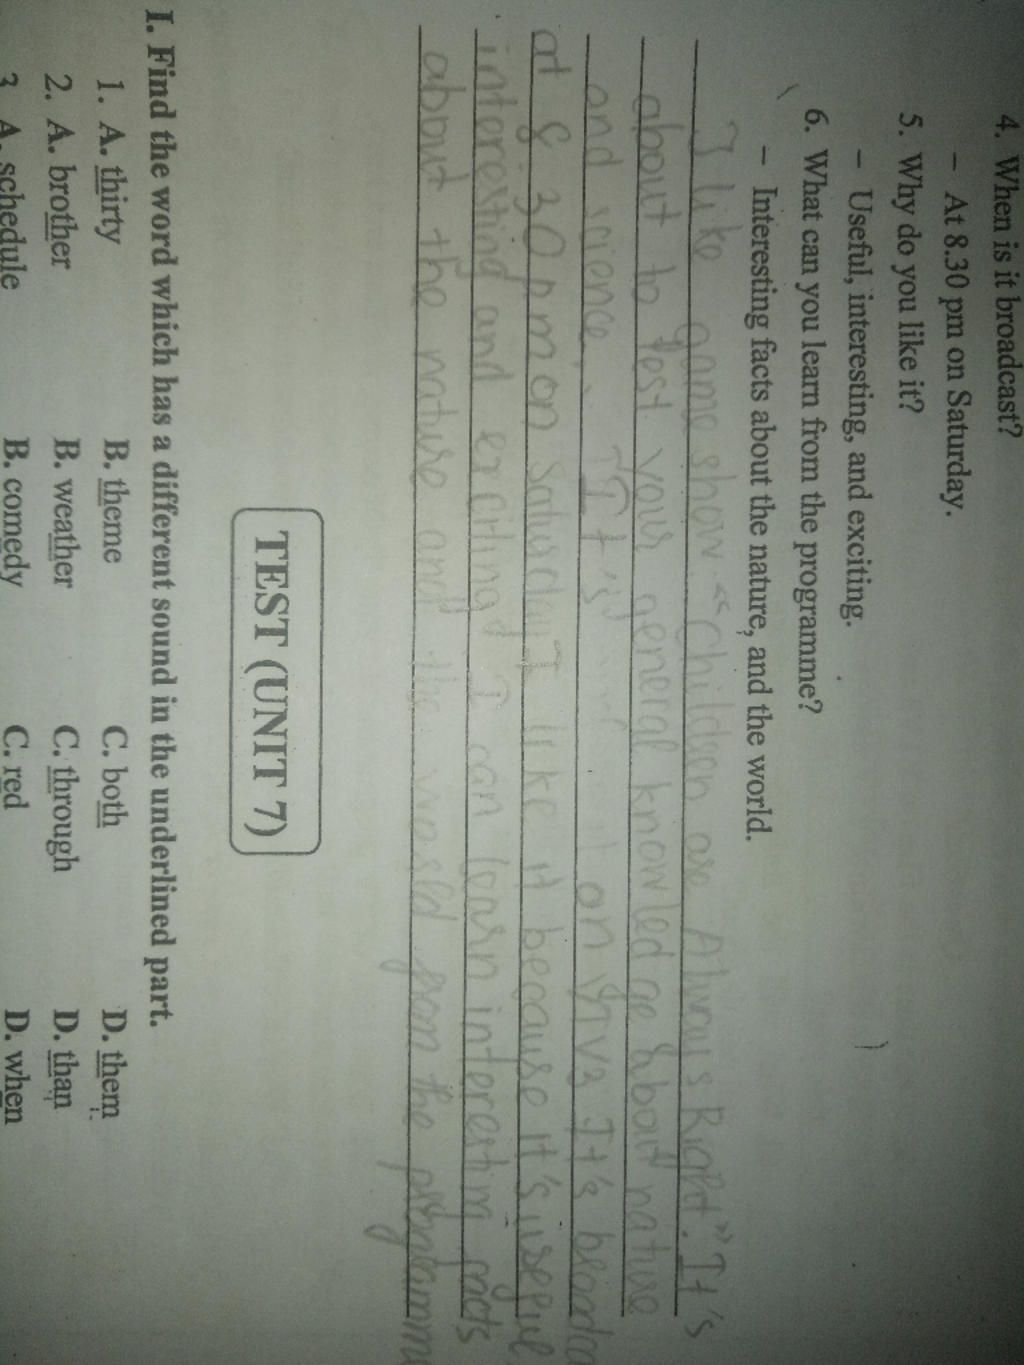 4. When is it broadcast?
– At 8.30 pm on Saturday.
5. Why do you like it?
– Useful, interesting, and exciting.
6. What can you learn from the programme?
– Interesting facts about the nature, and the world.
I like game show. "Children are Always Right". It's
about to test your general knowledge about nature
and science, It is on VTV3 It's broadca
at 8 30 pm on saturday I like it because it's useful
interesting and exciting I can learn interestim facts
about the nature and the world from the programm
TEST (UNIT 7)
I. Find the word which has a different sound in the underlined part.
1. A. thirty B. theme C. both D. them
2. A. brother B. weather C. through D. than
3 A. schedule B. comedy C. red D. when